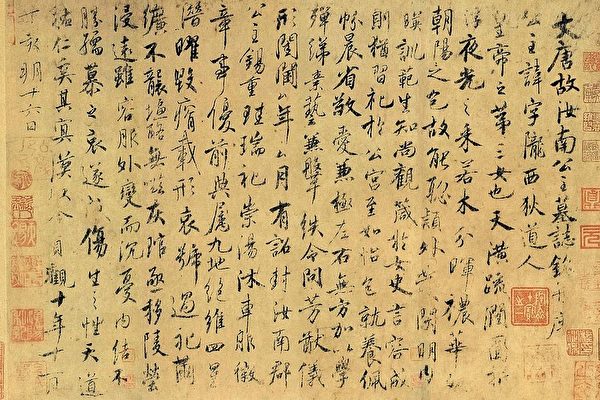 大唐故汝南公主墓誌銘并序
公主諱字隴西狄道人
皇帝之第三女也天潢疏潤圓折
浮夜光之采若木分暉穠華照
朝陽之色故能聰穎外發閑明內
暎訓範生知尚觀箴於女史言容成
則猶習禮於公宮至如怡色就養佩
帉晨省敬愛兼極左右無方加以學
殫綈素藝兼鞶紩令問芳猷儀
形閨閫厶年厶月有詔封汝南郡
公主錫重珪瑞禮崇湯沐車服徽
章事優前典屬九地絕維四星
潛曜毀瘠載形哀號過禮繭
纊不襲鹽酪無嗞灰琯亟移陵塋
浸遠雖容服外變而沉憂內結不
勝孺慕之哀遂成傷生之性天道
祐仁奚其冥漠以今貞觀十年十一月
丁亥朔十六日